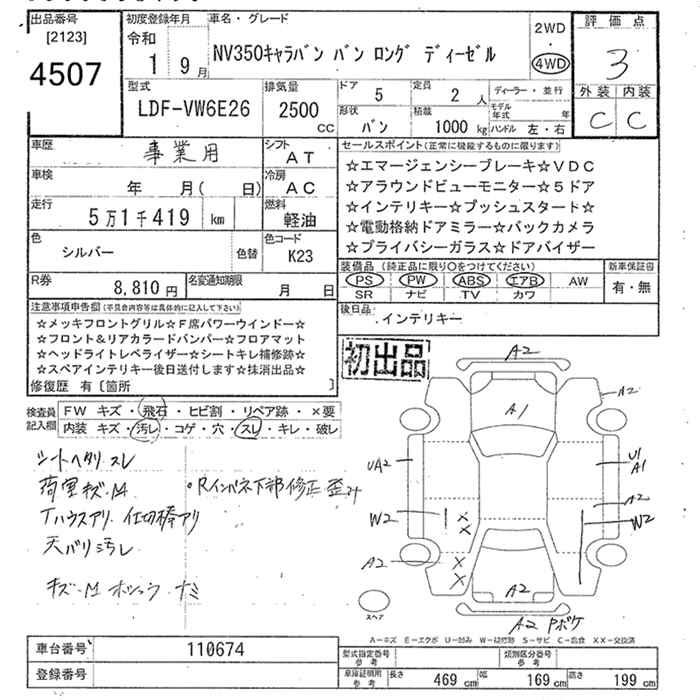 出品番号
[2123]
4507
初度登録年月
令和
1 9月
車名・グレード
NV350キャラバン バン ロング ディーゼル
2WD
・
4WD
評価点
3
外装 内装
C C
型式
LDF-VW6E26
排気量
2500
cc
ドア
5
定員
2 人
ディーラー・並行
モデル年式 年
形状
バン
積載
1000 kg
ハンドル 左・右
車歴
事業用
シフト
AT
車検
年 月( 日)
冷房
AC
走行
5万1千419 km
燃料
軽油
色
シルバー
色替
色コード
K23
R券
8,810円
名変通知期限
月 日
セールスポイント(正常に機能するものに限ります)
☆エマージェンシーブレーキ☆VDC
☆アラウンドビューモニター☆5ドア
☆インテリキー☆プッシュスタード☆
☆電動格納ドアミラー☆バックカメラ
☆プライバシーガラス☆ドアバイザー
装備品(純正品に限り○をつけてください)
PS PW ABS エアB AW
SR ナビ TV カワ
新車保証書
有・無
後日品
.インテリキー
注意事項申告欄(不具合内容等は具体的に記入して下さい)
☆メッキフロントグリル☆F席パワーウインドー☆
☆フロント&リアカラードバンパー☆フロアマット
☆ヘッドライトレベライザー☆シートキレ補修跡☆
☆スペアインテリキー後日送付します☆抹消出品☆
修復歴 有〔箇所 〕
初出品
検査員記入欄
FW キズ・飛石・ヒビ割・リペア跡・×要
内装 キズ・汚レ・コゲ・穴・スレ・キレ・破レ
シートヘタリ スレ
荷室キズ.M
Tハウスアリ. 仕切棒アリ
天バリ汚レ
キズ.M ボツコウ ナミ
○Rインパネ下部修正 歪ミ
A2
A1
A2
UA2
U1
A1
W2
A2
W2
A2
A2
A2 Pボケ
スペア
A-キズ E-エクボ U-凹み W-補修跡 S-サビ C-腐食 XX-交換済
車台番号
110674
登録番号
型式指定番号
参考
類別区分番号
参考
車庫証明用
参考
長さ 469 cm 幅 169 cm 高さ 199 cm